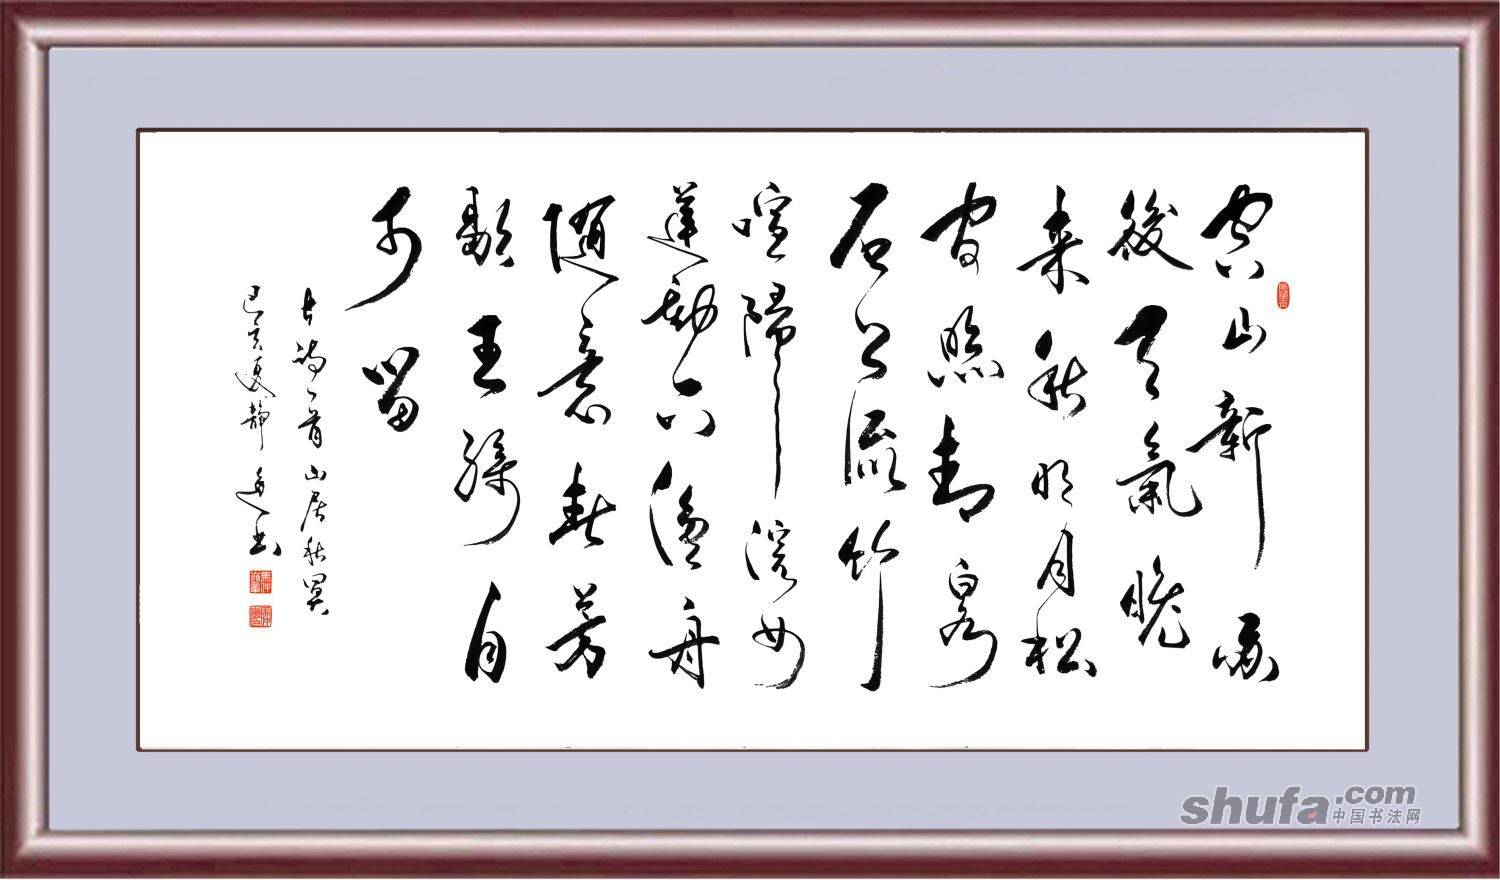 空山新雨
後天氣晚
来秋明月松
間照清泉
石上流竹
喧歸浣女
蓮動下漁舟
隨意春芳
歇王孫自
可留
古诗一首山居秋冥
己亥夏静书
shufa.com
中国书法网